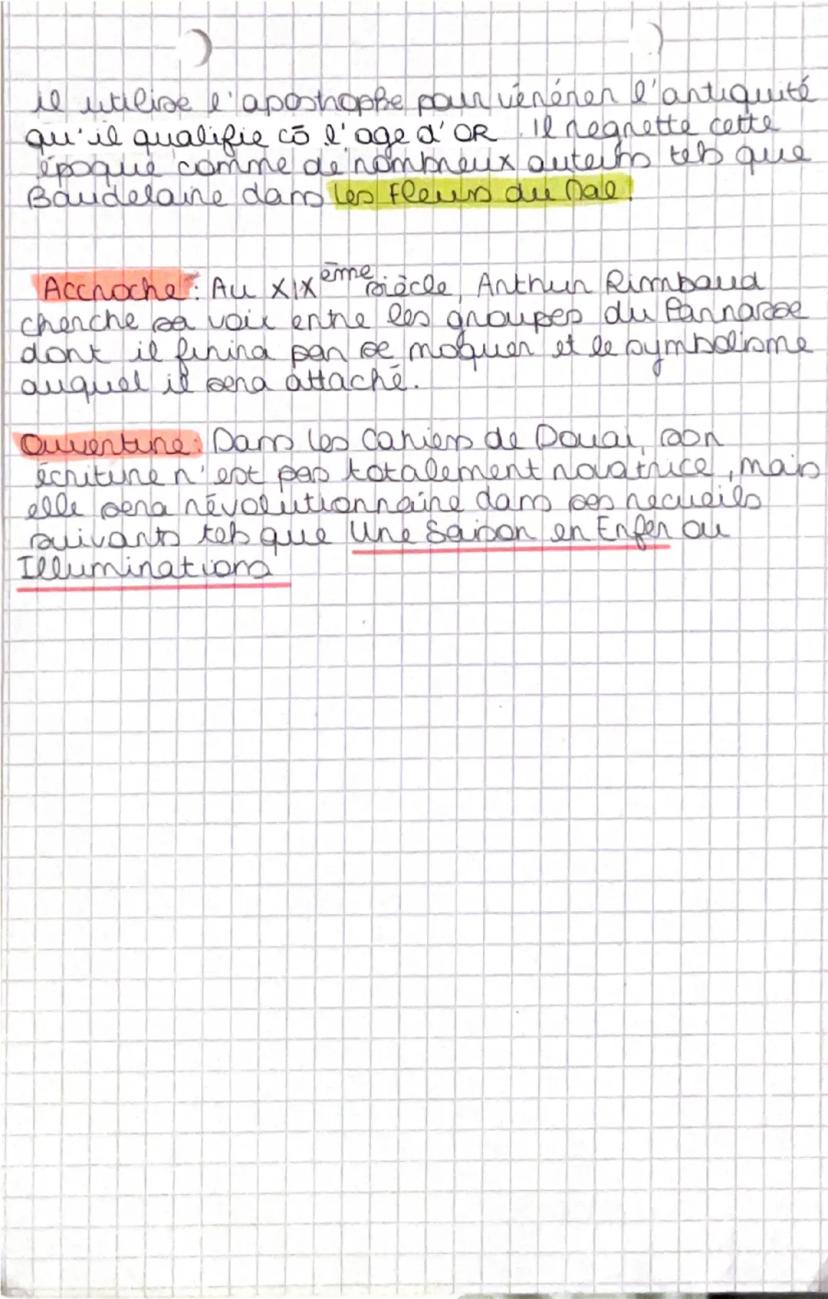 il utilise l'apostrophe pour vénérer l'antiquité
qu'il qualifie cō l'age d'OR. Il regrette cette
époque comme de nombreux auteurs tels que
Baudelaire dans les Fleurs du Mal.
Accroche : Au XIXème siècle, Arthur Rimbaud
cherche sa voix entre les groupes du Parnasse
dont il finira par se moquer et le symbolisme
auquel il sera attaché.
Ouverture : Dans les Cahiers de Douai, son
écriture n'est pas totalement novatrice, mais
elle sera révolutionnaire dans ses recueils
suivants tels que Une Saison en Enfer ou
Illuminations